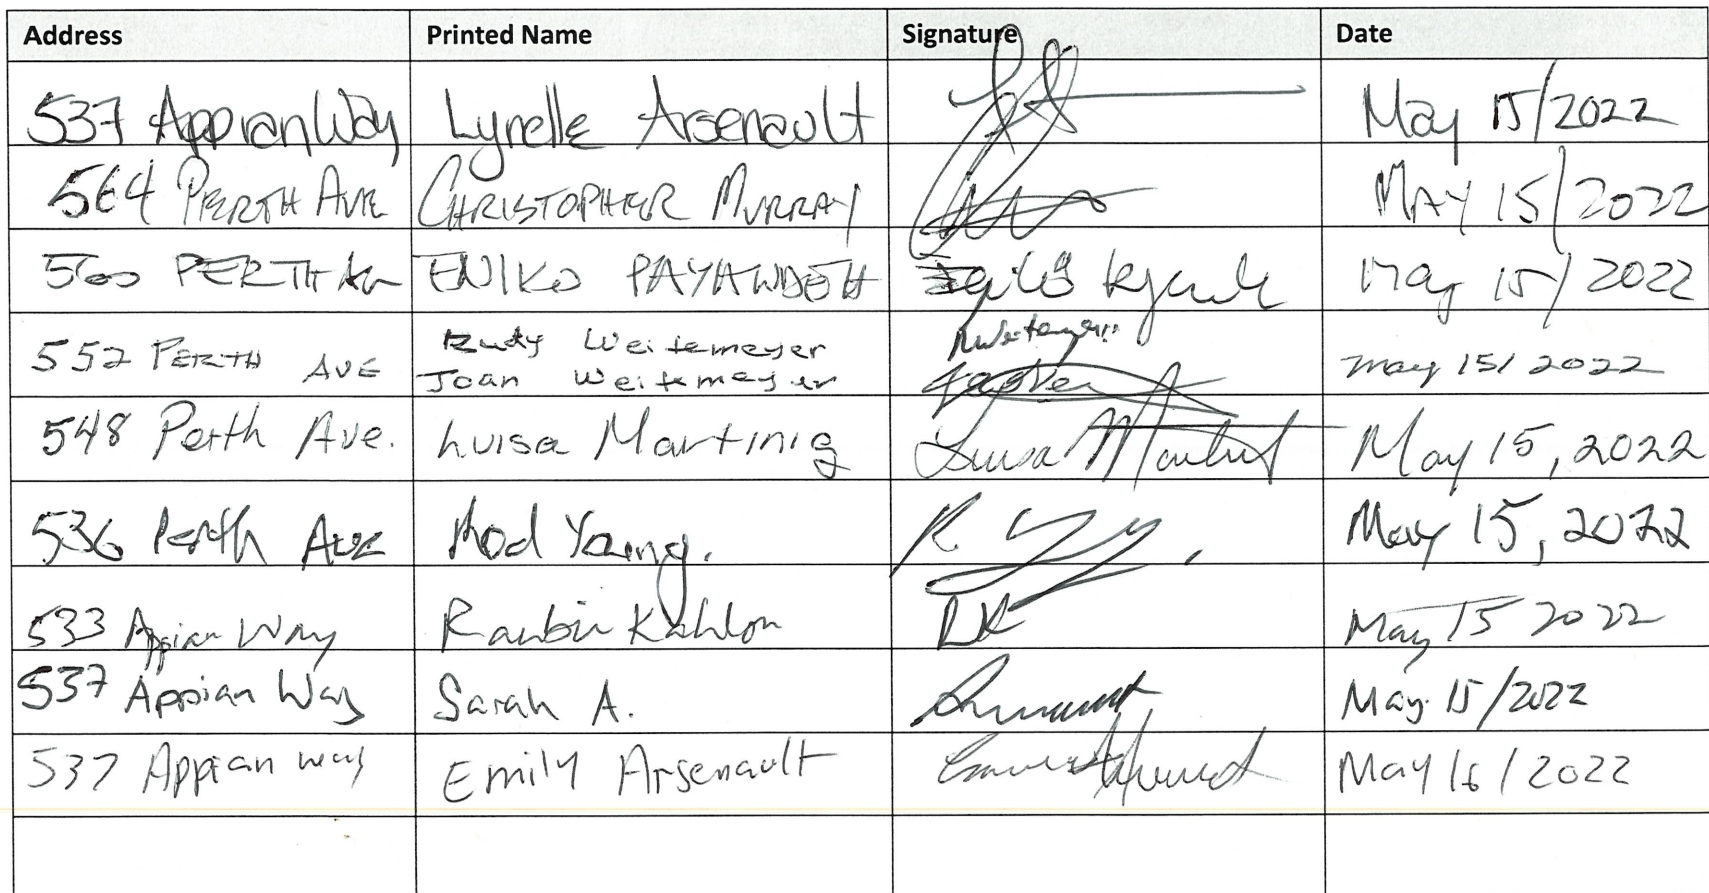 Address Printed Name Signature Date
537 Appian Way Lynelle Arsenault May 15/2022
564 PERTH AVE CHRISTOPHER MURRAY MAY 15/2022
560 PERTH AV ENIKO May 15/2022
552 PERTH AVE Rudy Weitemeyer
Joan Weitemeyer May 15/2022
548 Perth Ave. Luisa Martinig Luisa May 15, 2022
536 Perth Ave Rod Young. R. May 15, 2022
533 Appian Way Ranbir Kahlon RK May 15 2022
537 Appian Way Sarah A. May 15/2022
537 Appian way Emily Arsenault May 16/2022